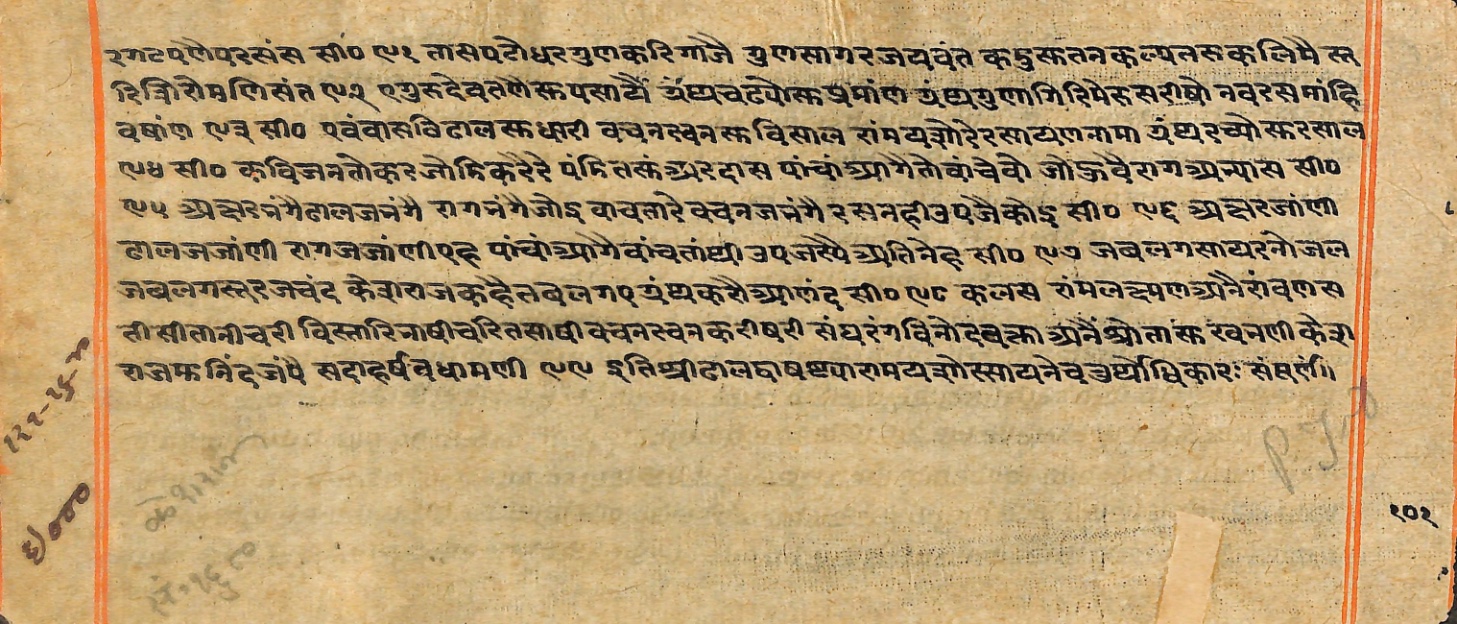 रगटपणैपरसंस सी० ९१ तासपटोधरगुणकरिगाजै गुणसागरजयवंत कद्रुस्कतनकल्पतरुकलिमै स्त
रिशिरोमणिसंत ९२ एगुरुदेवतणैस्कपसाउै ग्रंथचढ्योस्कप्रमांण ग्रंथगुणागिरिमेरुसरीषो नवरसमांहि
वषांण ९३ सी० एवंवासविढालस्कधारी वचनरचनस्कविसाल रांमयशोरेरसायणनामा ग्रंथरच्योस्करसाल
९४ सी० कविजनतोकरजोडिकरेरे पंडितस्कंअरदास पांचांआगैतोवांचेवो जोऊवैरागअन्यास सी०
९५ अक्षरनंगैढालजनंगै रागनंगैजोइ वाचतारेवचनजनंगै रसनहीउपजैकोइ सी० ९६ अक्षरजांणी
ढालजजांणी रागजजांणीएह पांचांआगैवांचतांथी उपजस्यैअतिनेह सी० ९७ जबलगसायरनोजल
जबलगस्तरजचंद केशराजकहैतबलगएग्रंथकरौआणंद सी० ९८ कलस रांमलक्ष्मणअनैरांवणस
तीसीतानीचरी विस्तारिनाषीचरितसाषी वचनरचनकरीषरी संघरंगविनोदवक्ता अनैश्रोतास्कखनणी केश
राजमुनिंदजंपै सदाहर्षवधामणी ९९ इतिश्रीढालबाषष्ट्यारामयशोरसायनेचउर्थोधिकारः संपूर्णं॥
१०२